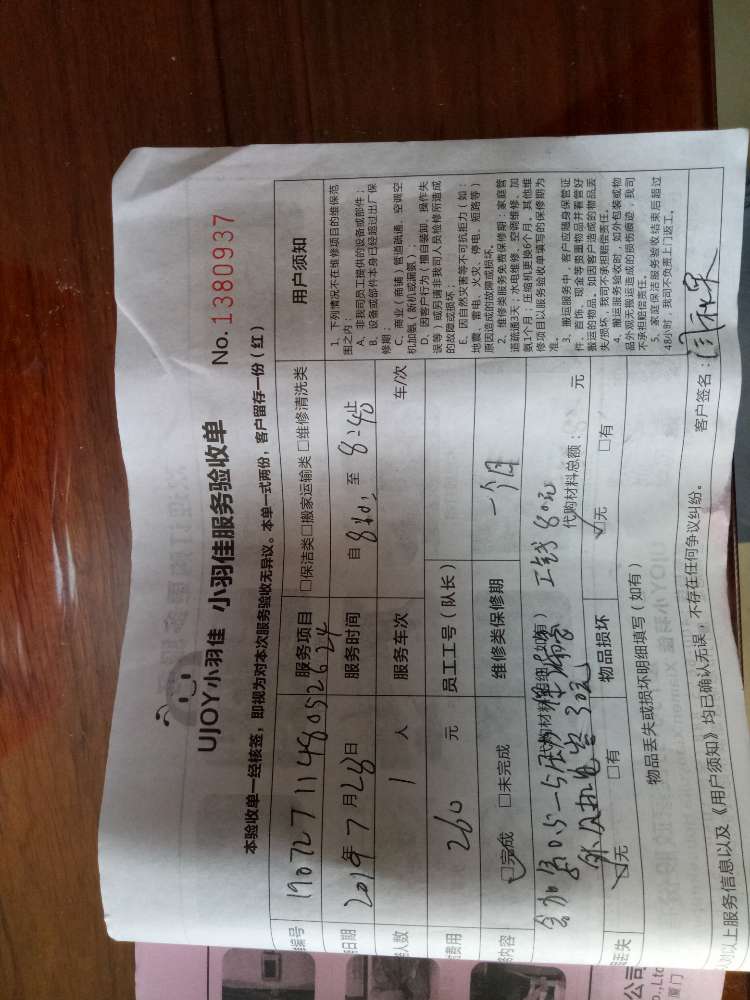 UJOY小羽佳 小羽佳服务验收单
No. 1380937
本验收单一经核签，即视为对本次服务验收无异议。本单一式两份，客户留存一份（红）
编号 1907271148052624
服务项目 □保洁类□搬家运输类 □维修清洗类
日期 2019年7月28日
服务时间 自 8:10 至 8:40止
人数 1 人
服务车次 车/次
费用 260 元
员工工号（队长）
内容 ☑完成 □未完成
维修类保修期 一个月
代购材料明细（如有）
工钱80元
外机电容30元
代购材料总额： 元
丢失 ☑无 □有
物品损坏 ☑无 □有
物品丢失或损坏明细填写（如有）
对以上服务信息以及《用户须知》均已确认无误，不存在任何争议纠纷。
客户签名：
用户须知
1、下列情况不在维修项目的维保范
围之内：
A、非我司员工提供的设备或部件；
B、设备或部件本身已经超过出厂保
修期；
C、商业（商铺）管道疏通、空调空
机加氨（新机或漏氨）。
D、因客户行为（擅自装卸、操作失
误等）或另请非我司人员检修所造成
的故障或损坏。
E、因自然灾害等不可抗拒力（如：
地震、雷电、火灾、停电、短路等）
原因造成的故障或损坏。
2、维修类服务免费保修期：家庭管
道疏通3天；水电维修、空调维修、加
氨1个月；压缩机更换6个月。其他维
修项目以服务验收单填写的保修期为
准。
3、搬运服务中，客户应随身保管证
件、首饰、现金等贵重物品并看管好
搬运的物品。如因客户造成的物品丢
失/损坏，我司不承担赔偿责任。
4、搬运服务验收时，如外包装或物
品外观无搬运造成的损伤痕迹，我司
不承担赔偿责任。
5、家庭保洁服务验收结束后超过
48小时，我司不负责上门返工。
公司
.,Ltd
厦门